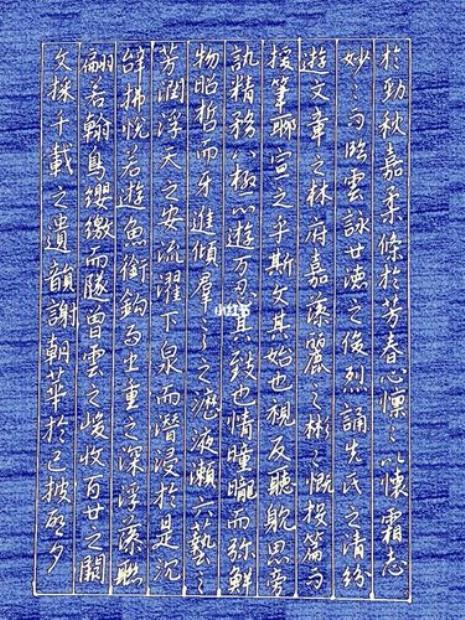 於勁秋嘉柔條於芳春心懍々以懷霜志
妙々而臨雲詠世德之俊烈誦先民之清紛
遊文章之林府嘉藻麗之彬々慨投篇而
援筆聊宣之乎斯文其始也視反聽耽思旁
訊精務八極心遊万仞其致也情曈曨而弥鮮
物昭晢而牙進傾羣言之瀝液瀨六藝之
芳潤浮天之安流濯下泉而潛浸於是沉
辞拂悅若遊魚銜鈎而出重之深浮藻聯
翩若翰鳥纓繳而墜曾雲之峻收百世之闕
文採千載之遺韻謝朝華於已披啓夕
小红书